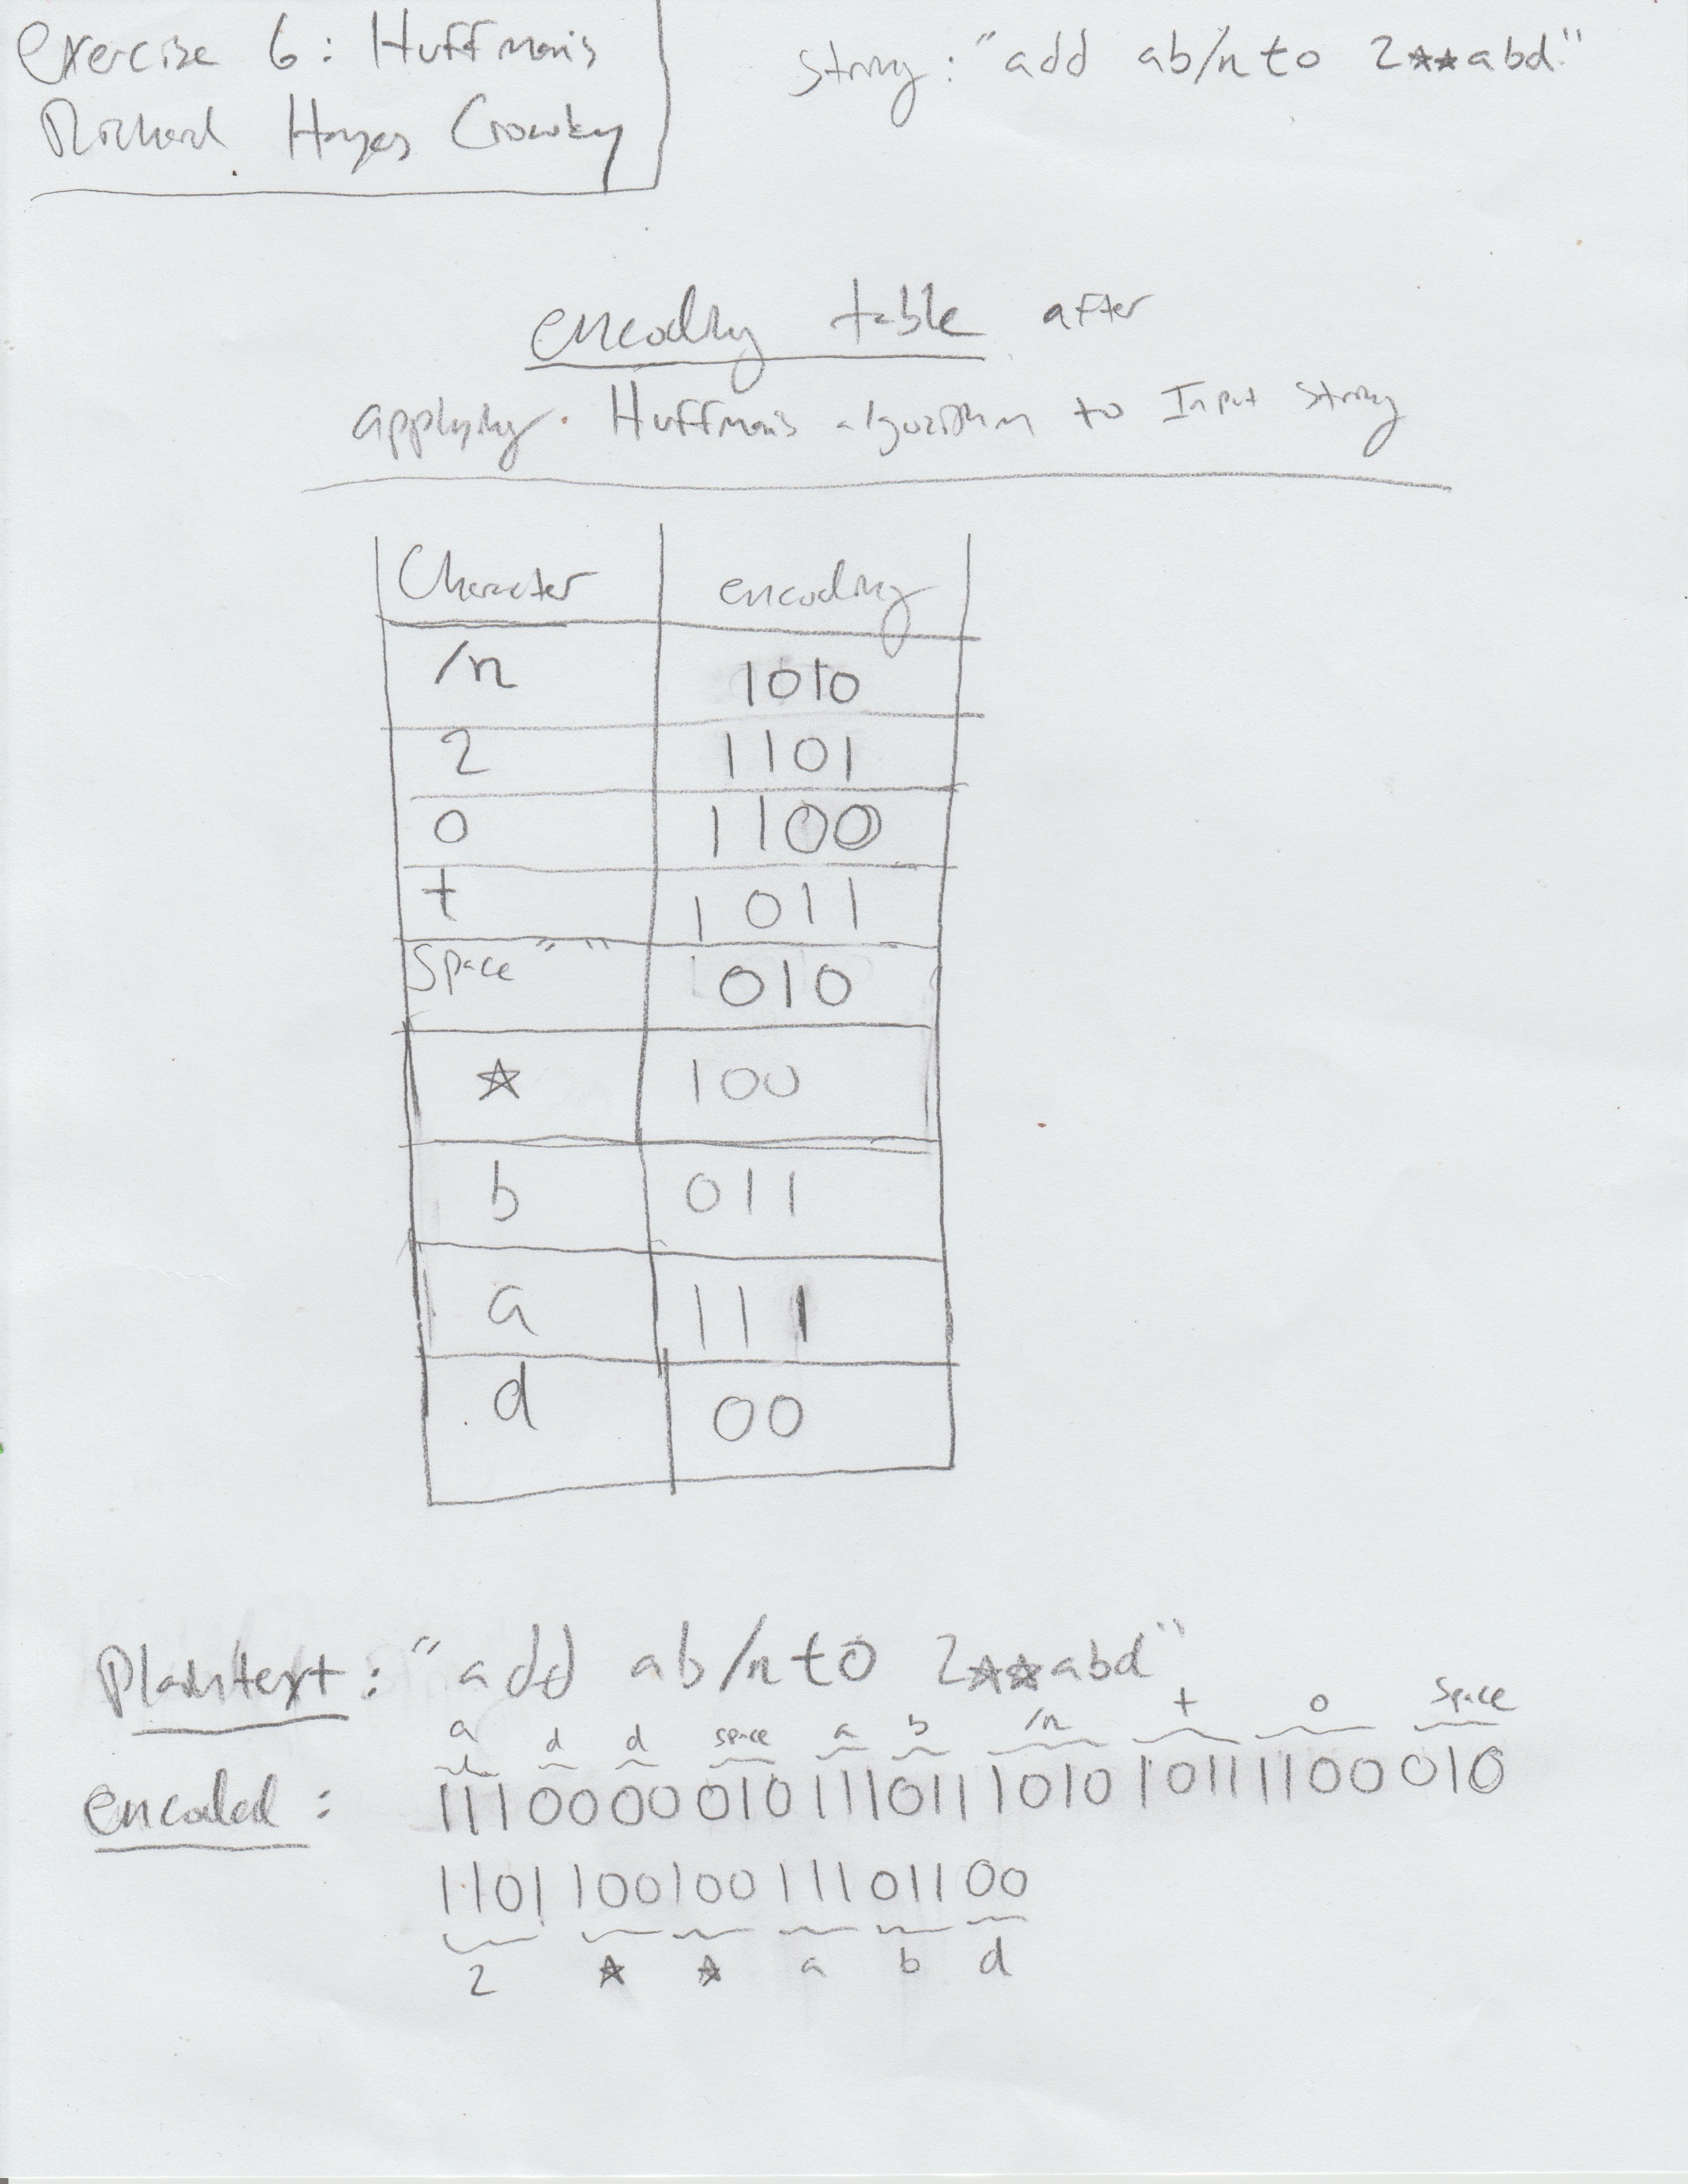 Exercise 6: Huffman's
Richard Hayes Crowley
String: "add ab/n to 2**abd"
encoding table after
applying Huffman's algorithm to Input String
Character encoding
/n 1010
2 1101
o 1100
t 1011
Space " " 010
* 100
b 011
a 111
d 00
Plaintext: "add ab/n to 2**abd"
a d d space a b /n t o Space
encoded: 111 00 00 010 111 011 1010 1011 1100 010
1101 100 100 111 011 00
2 * * a b d